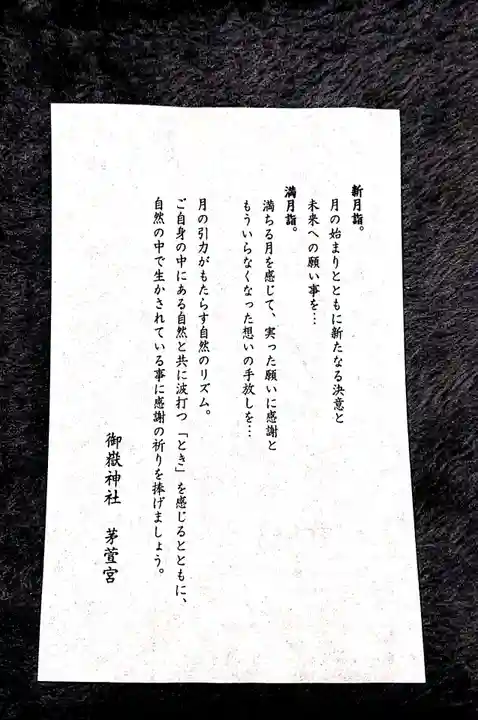 新月詣。
月の始まりとともに新たなる決意と
未来への願い事を…
満月詣。
満ちる月を感じて、実った願いに感謝と
もういらなくなった想いの手放しを…
月の引力がもたらす自然のリズム。
ご自身の中にある自然と共に波打つ「とき」を感じるとともに、
自然の中で生かされている事に感謝の祈りを捧げましょう。
御嶽神社　茅萱宮